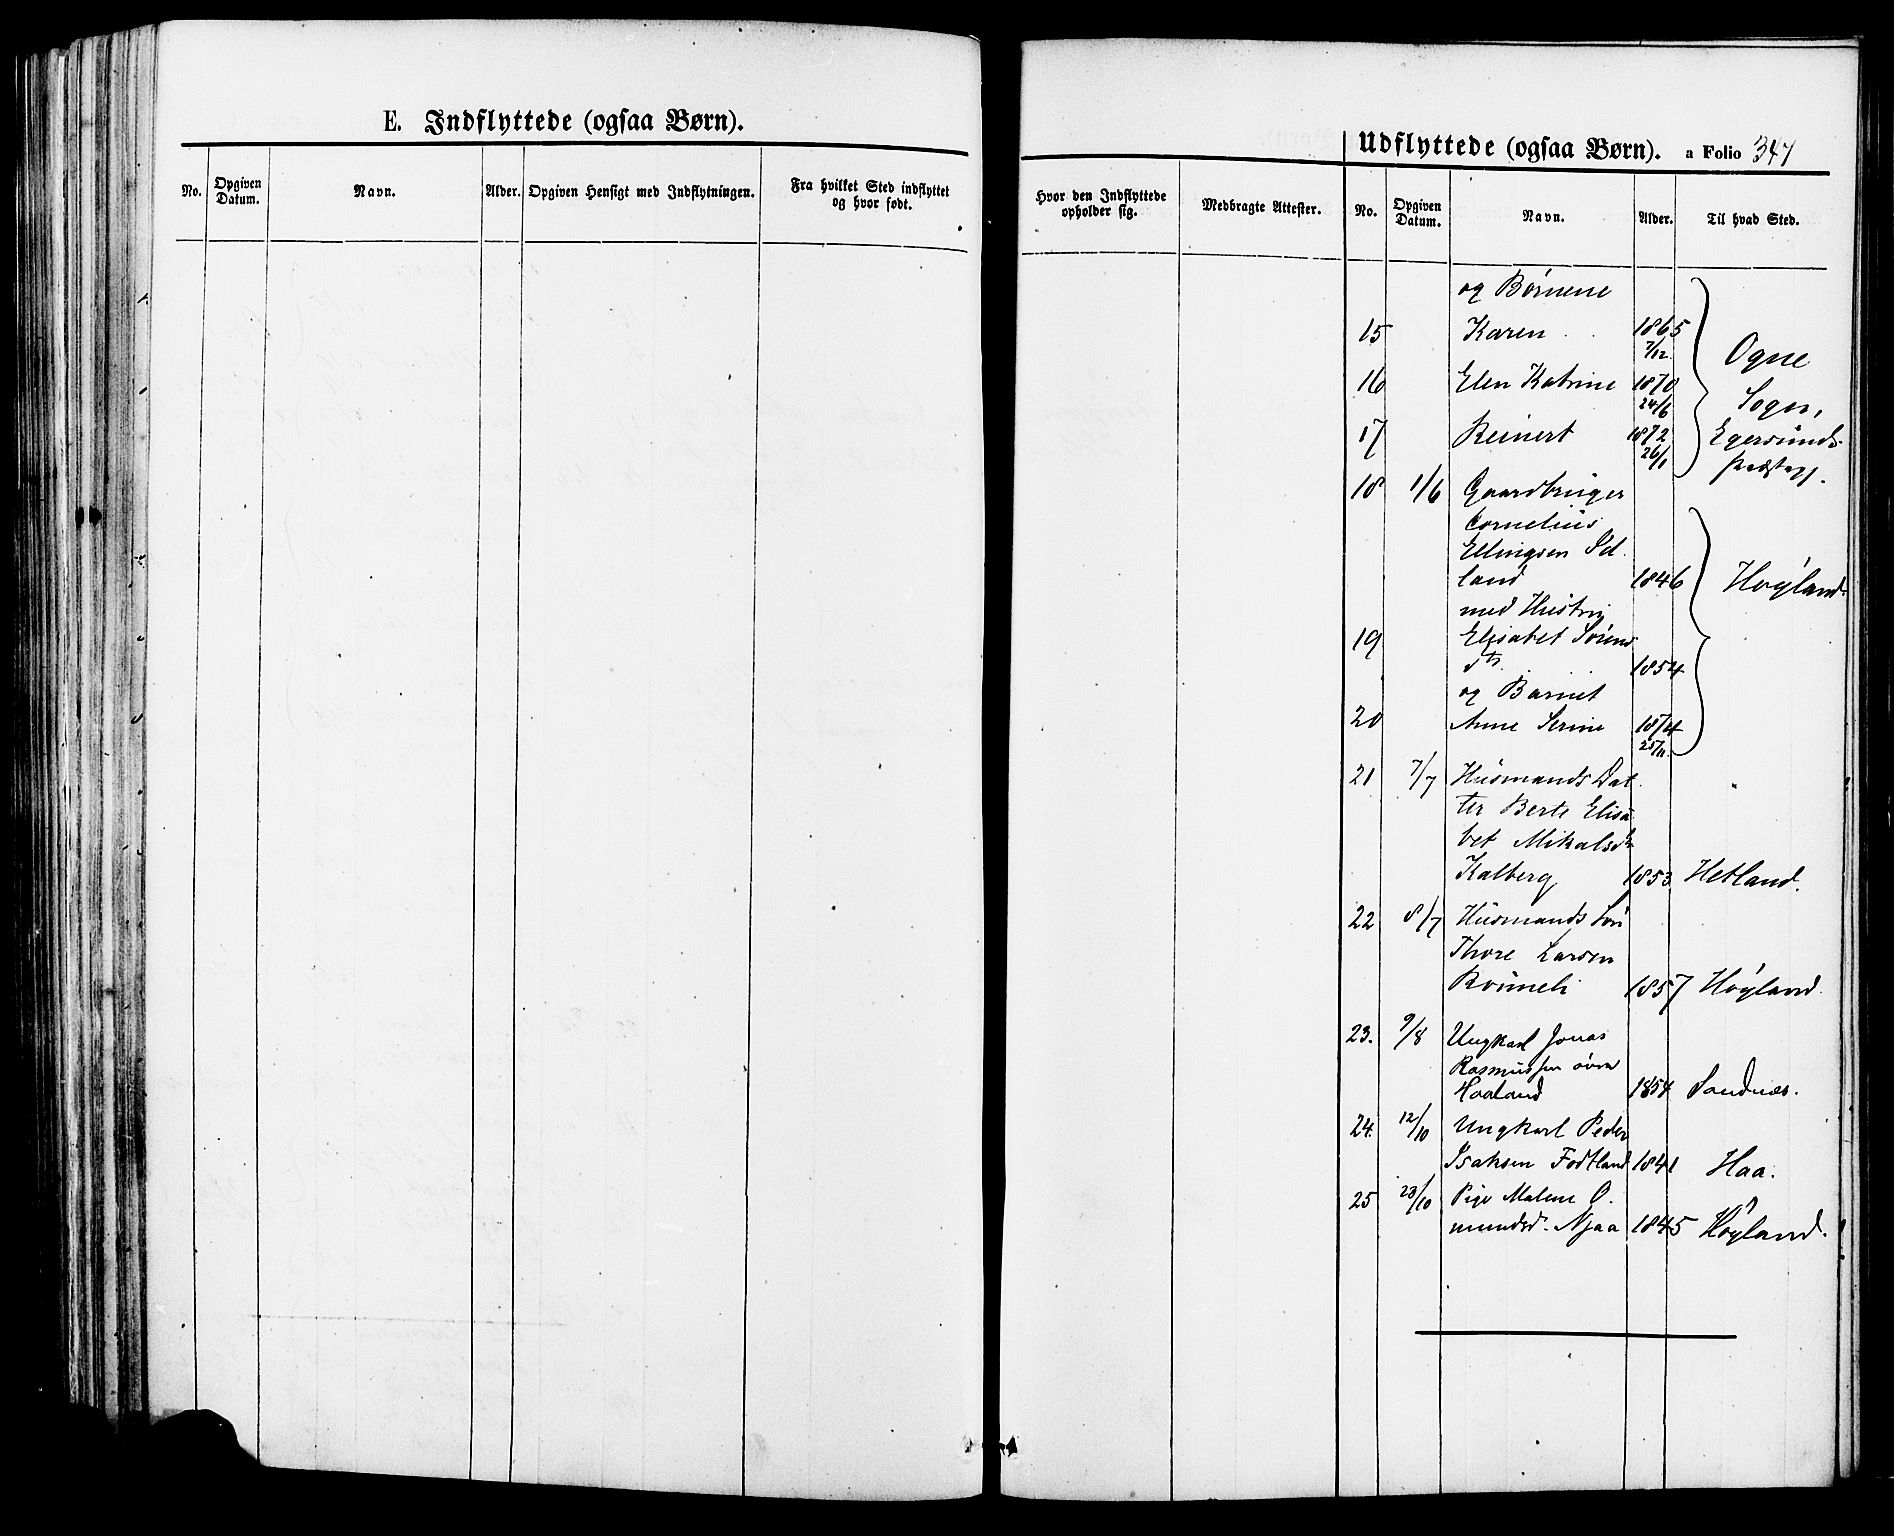 E. Indflyttede (ogsaa Børn).
No. Opgiven Datum. Navn. Alder. Opgiven Hensigt med Indflytningen. Fra hvilket Sted indflyttet og hvor født.
Udflyttede (ogsaa Børn). a Folio 347
Hvor den Indflyttede opholder sig. Medbragte Attester. No. Opgiven Datum. Navn. Alder. Til hvad Sted.
og Børnene
15 Karen 1865
7/12 Ogne
16 Elen Katrine 1870
24/6 Sogn,
17 Reinert 1872 Egersunds
26/1 Præstegj.
18 1/6 Gaardbruger
Cornelius
Ellingsen
land 1846 Høyland
med Hustru
19 Elisabet Sørens
dtr. 1854
og Barnet
20 Anne Serine 1874
25/11
21 7/7 Husmands Dat
ter Berte Elisa
bet Mikalsdtr
Kalberg 1853 Hetland.
22 8/7 Husmands Søn
Thore Larsen
1857 Høyland.
23. 9/8 Ungkarl Jonas
Rasmussen øvre
Haaland 1854 Sandnæs.
24. 12/10 Ungkarl Peder
Isaksen Fodtland 1841 Haa.
25 23/10 Pige Malene O.
mundsd. Njaa 1845 Høyland.